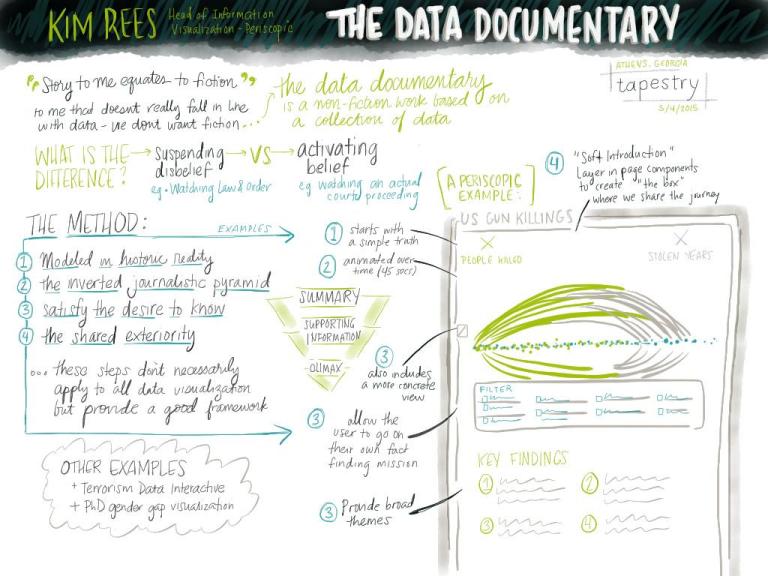 KIM REES
Head of Information
Visualization - Periscopic
THE DATA DOCUMENTARY
ATHENS, GEORGIA
tapestry
3/4/2015
"Story to me equates to fiction"
to me that doesn't really fall in line
with data - we dont want fiction...
the data documentary
is a non-fiction work based on
a collection of data
WHAT IS THE
DIFFERENCE?
suspending
disbelief
eg. Watching Law & Order
VS
activating
belief
eg watching an actual
court proceeding
THE METHOD:
EXAMPLES
1 Modeled in historic reality
2 the inverted journalistic pyramid
3 satisfy the desire to know
4 the shared exteriority
... these steps don't necessarily
apply to all data visualization
but provide a good framework
SUMMARY
SUPPORTING
INFORMATION
CLIMAX
OTHER EXAMPLES
+ Terrorism Data Interactive
+ PhD gender gap visualization
A PERISCOPIC
EXAMPLE:
1 starts with
a simple truth
2 animated over
time (45 secs)
3
also includes
a more concrete
view
3 allow the
user to go on
their own fact
finding mission
3 Provide broad
themes
4 "Soft Introduction"
Layer in page components
to create "the box"
where we share the journey
US GUN KILLINGS
PEOPLE KILLED
STOLEN YEARS
FILTER
KEY FINDINGS
1
2
3
4